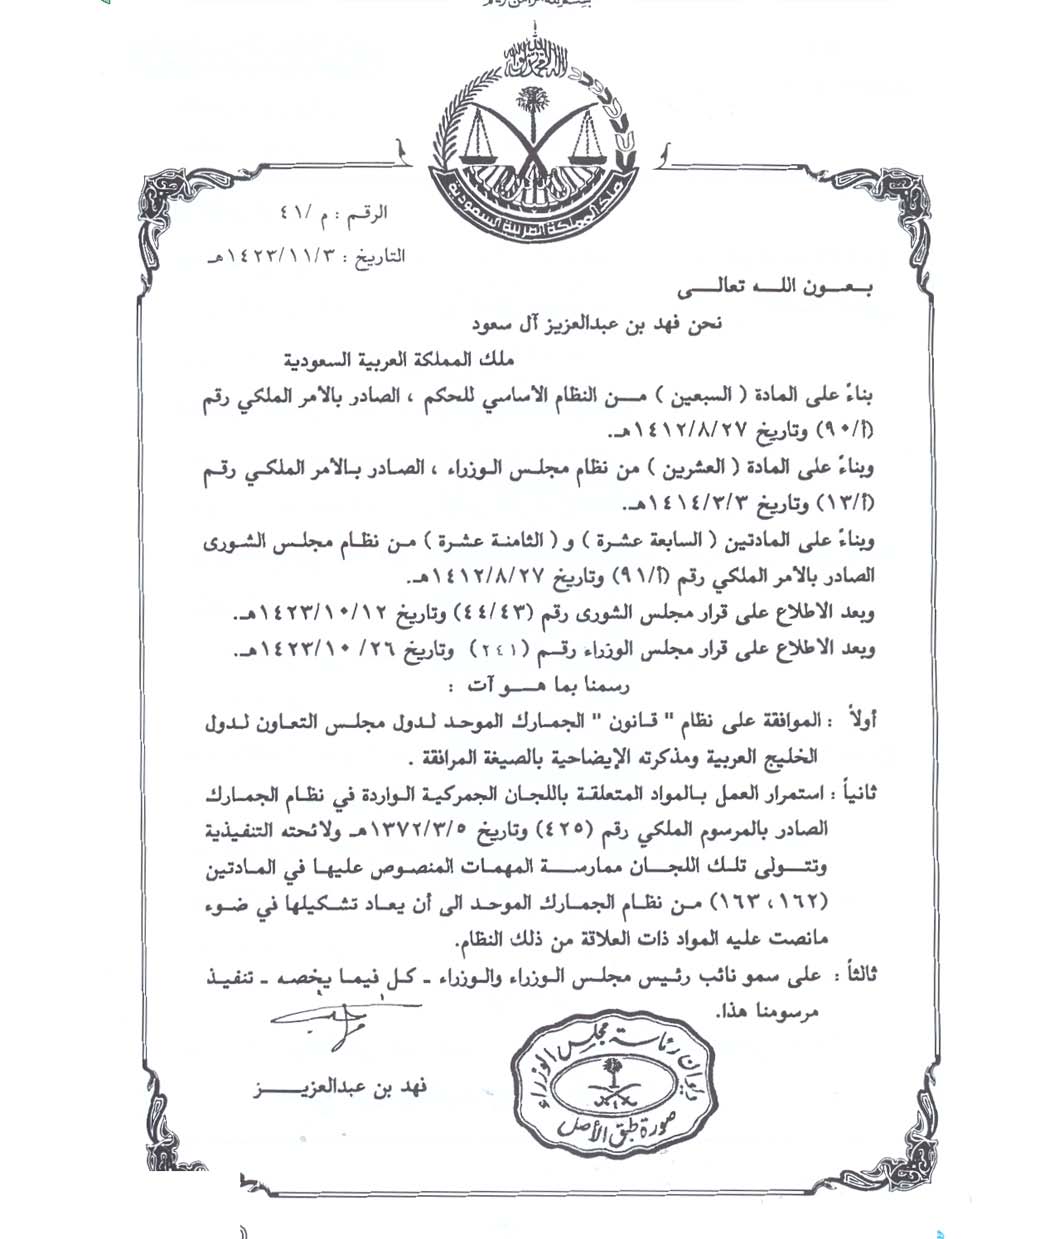 الرقم : م /٤١
التاريخ : ١٤٢٣/١١/٣هـ
بعون الله تعالى
نحن فهد بن عبدالعزيز آل سعود
ملك المملكة العربية السعودية
بناءً على المادة ( السبعين ) من النظام الأساسي للحكم ، الصادر بالأمر الملكي رقم
(أ/٩٠) وتاريخ ١٤١٢/٨/٢٧هـ.
وبناءً على المادة ( العشرين ) من نظام مجلس الوزراء ، الصادر بالأمر الملكي رقم
(أ/١٣) وتاريخ ١٤١٤/٣/٣هـ.
وبناءً على المادتين ( السابعة عشرة ) و ( الثامنة عشرة ) من نظام مجلس الشورى
الصادر بالأمر الملكي رقم (أ/٩١) وتاريخ ١٤١٢/٨/٢٧هـ.
وبعد الاطلاع على قرار مجلس الشورى رقم (٤٤/٤٣) وتاريخ ١٤٢٣/١٠/١٢هـ.
وبعد الاطلاع على قرار مجلس الوزراء رقم (٢٤١) وتاريخ ١٤٢٣/١٠/٢٦هـ.
رسمنا بما هو آت :
أولاً : الموافقة على نظام " قانون " الجمارك الموحد لدول مجلس التعاون لدول
الخليج العربية ومذكرته الإيضاحية بالصيغة المرافقة .
ثانياً : استمرار العمل بالمواد المتعلقة باللجان الجمركية الواردة في نظام الجمارك
الصادر بالمرسوم الملكي رقم (٤٢٥) وتاريخ ١٣٧٢/٣/٥هـ ولائحته التنفيذية
وتتولى تلك اللجان ممارسة المهمات المنصوص عليها في المادتين
(١٦٢، ١٦٣) من نظام الجمارك الموحد الى أن يعاد تشكيلها في ضوء
مانصت عليه المواد ذات العلاقة من ذلك النظام.
ثالثاً : على سمو نائب رئيس مجلس الوزراء والوزراء ـ كل فيما يخصه ـ تنفيذ
مرسومنا هذا.
ديوان رئاسة مجلس الوزراء
صورة طبق الأصل
فهد بن عبدالعزيز